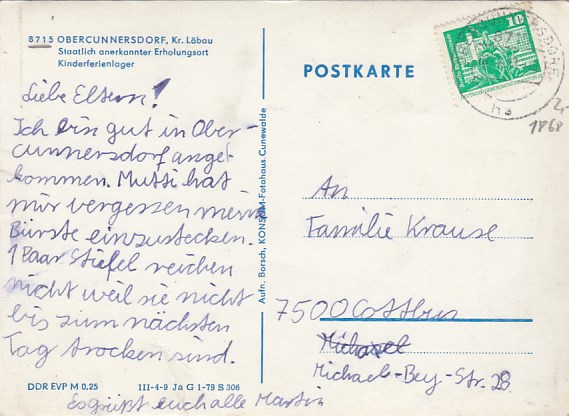 8715 OBERCUNNERSDORF, Kr. Löbau
Staatlich anerkannter Erholungsort
Kinderferienlager
Liebe Eltern!
Ich bin gut in Ober-
cunnersdorf angek
kommen. Mutti hat
mir vergessen mein
Bürste einzustecken.
1 Paar Stiefel reichen
nicht weil sie nicht
bis zum nächsten
Tag trocken sind.
Es grüßt euch alle Martin
DDR EVP M 0.25 III-4-9 Ja G 1-79 S 306
Aufn. Borsch, KONSUM-Fotohaus Cunewalde
POSTKARTE
10
1868
An
Familie Krause
7500 Cottbus
Michael
Michael-Bey-Str. 28